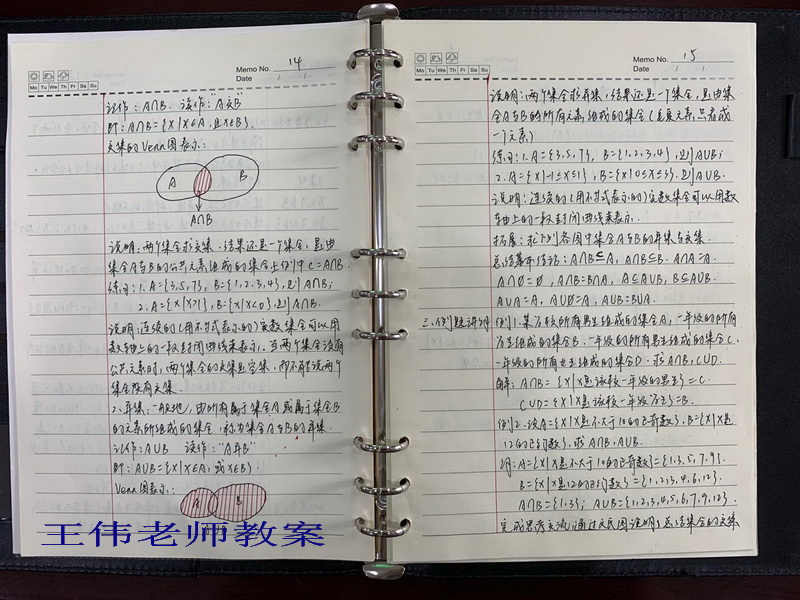 Memo No. 14
Date / /
Mo Tu We Th Fr Sa Su
记作:A∩B. 读作:"A交B"
即:A∩B={x|x∈A,且x∈B}.
交集的Venn图表示:
A B
A∩B
说明:两个集合求交集,结果还是一个集合,是由
集合A与B的公共元素组成的集合上例中C=A∩B.
练习:1. A={3,5,7}, B={1,2,3,4},则A∩B;
2. A={x|x>1}, B={x|x<0},则A∩B.
说明:连续的(用不等式表示的)实数集合可以用
数轴上的一段封闭曲线来表示.当两个集合没有
公共元素时,两个集合的交集是空集,而不能说两个
集合没有交集.
2、并集:一般地,由所有属于集合A或属于集合B
的元素所组成的集合,称为集合A与B的并集.
记作:A∪B 读作:"A并B"
即:A∪B={x|x∈A,或x∈B}.
Venn图表示:
A B
王伟老师教案
Memo No. 15
Date / /
Mo Tu We Th Fr Sa Su
说明:两个集合求并集,结果还是一个集合,是由集
合A与B的所有元素组成的集合(重复元素只看成
一个元素)
练习:1. A={3,5,7}, B={1,2,3,4},则A∪B;
2. A={x|-1≤x≤1}, B={x|0≤x≤3},则A∪B.
说明:连续的(用不等式表示的)实数集合可以用数
轴上的一段封闭曲线来表示.
拓展:求下列各图中集合A与B的并集与交集.
总结基本结论:A∩B⊆A, A∩B⊆B. A∩A=A.
A∩∅=∅, A∩B=B∩A, A⊆A∪B, B⊆A∪B.
A∪A=A, A∪∅=A, A∪B=B∪A.
三、例题讲解 例1.某高校所有男生组成的集合A,一年级的所有
女生组成的集合B.一年级的所有男生组成的集合C,
一年级的所有女生组成的集合D.求A∩B,C∪D.
解:A∩B={x|x是该校一年级的男生}=C.
C∪D={x|x是该校一年级学生}=B.
例2.设A={x|x是不大于10的正奇数}, B={x|x是
12的正约数},求A∩B,A∪B.
解:A={x|x是不大于10的正奇数}={1,3,5,7,9}.
B={x|x是12的正约数}={1,2,3,4,6,12}.
A∩B={1,3}; A∪B={1,2,3,4,5,6,7,9,12}.
完成思考交流,通过文氏图说明,总结集合的交集